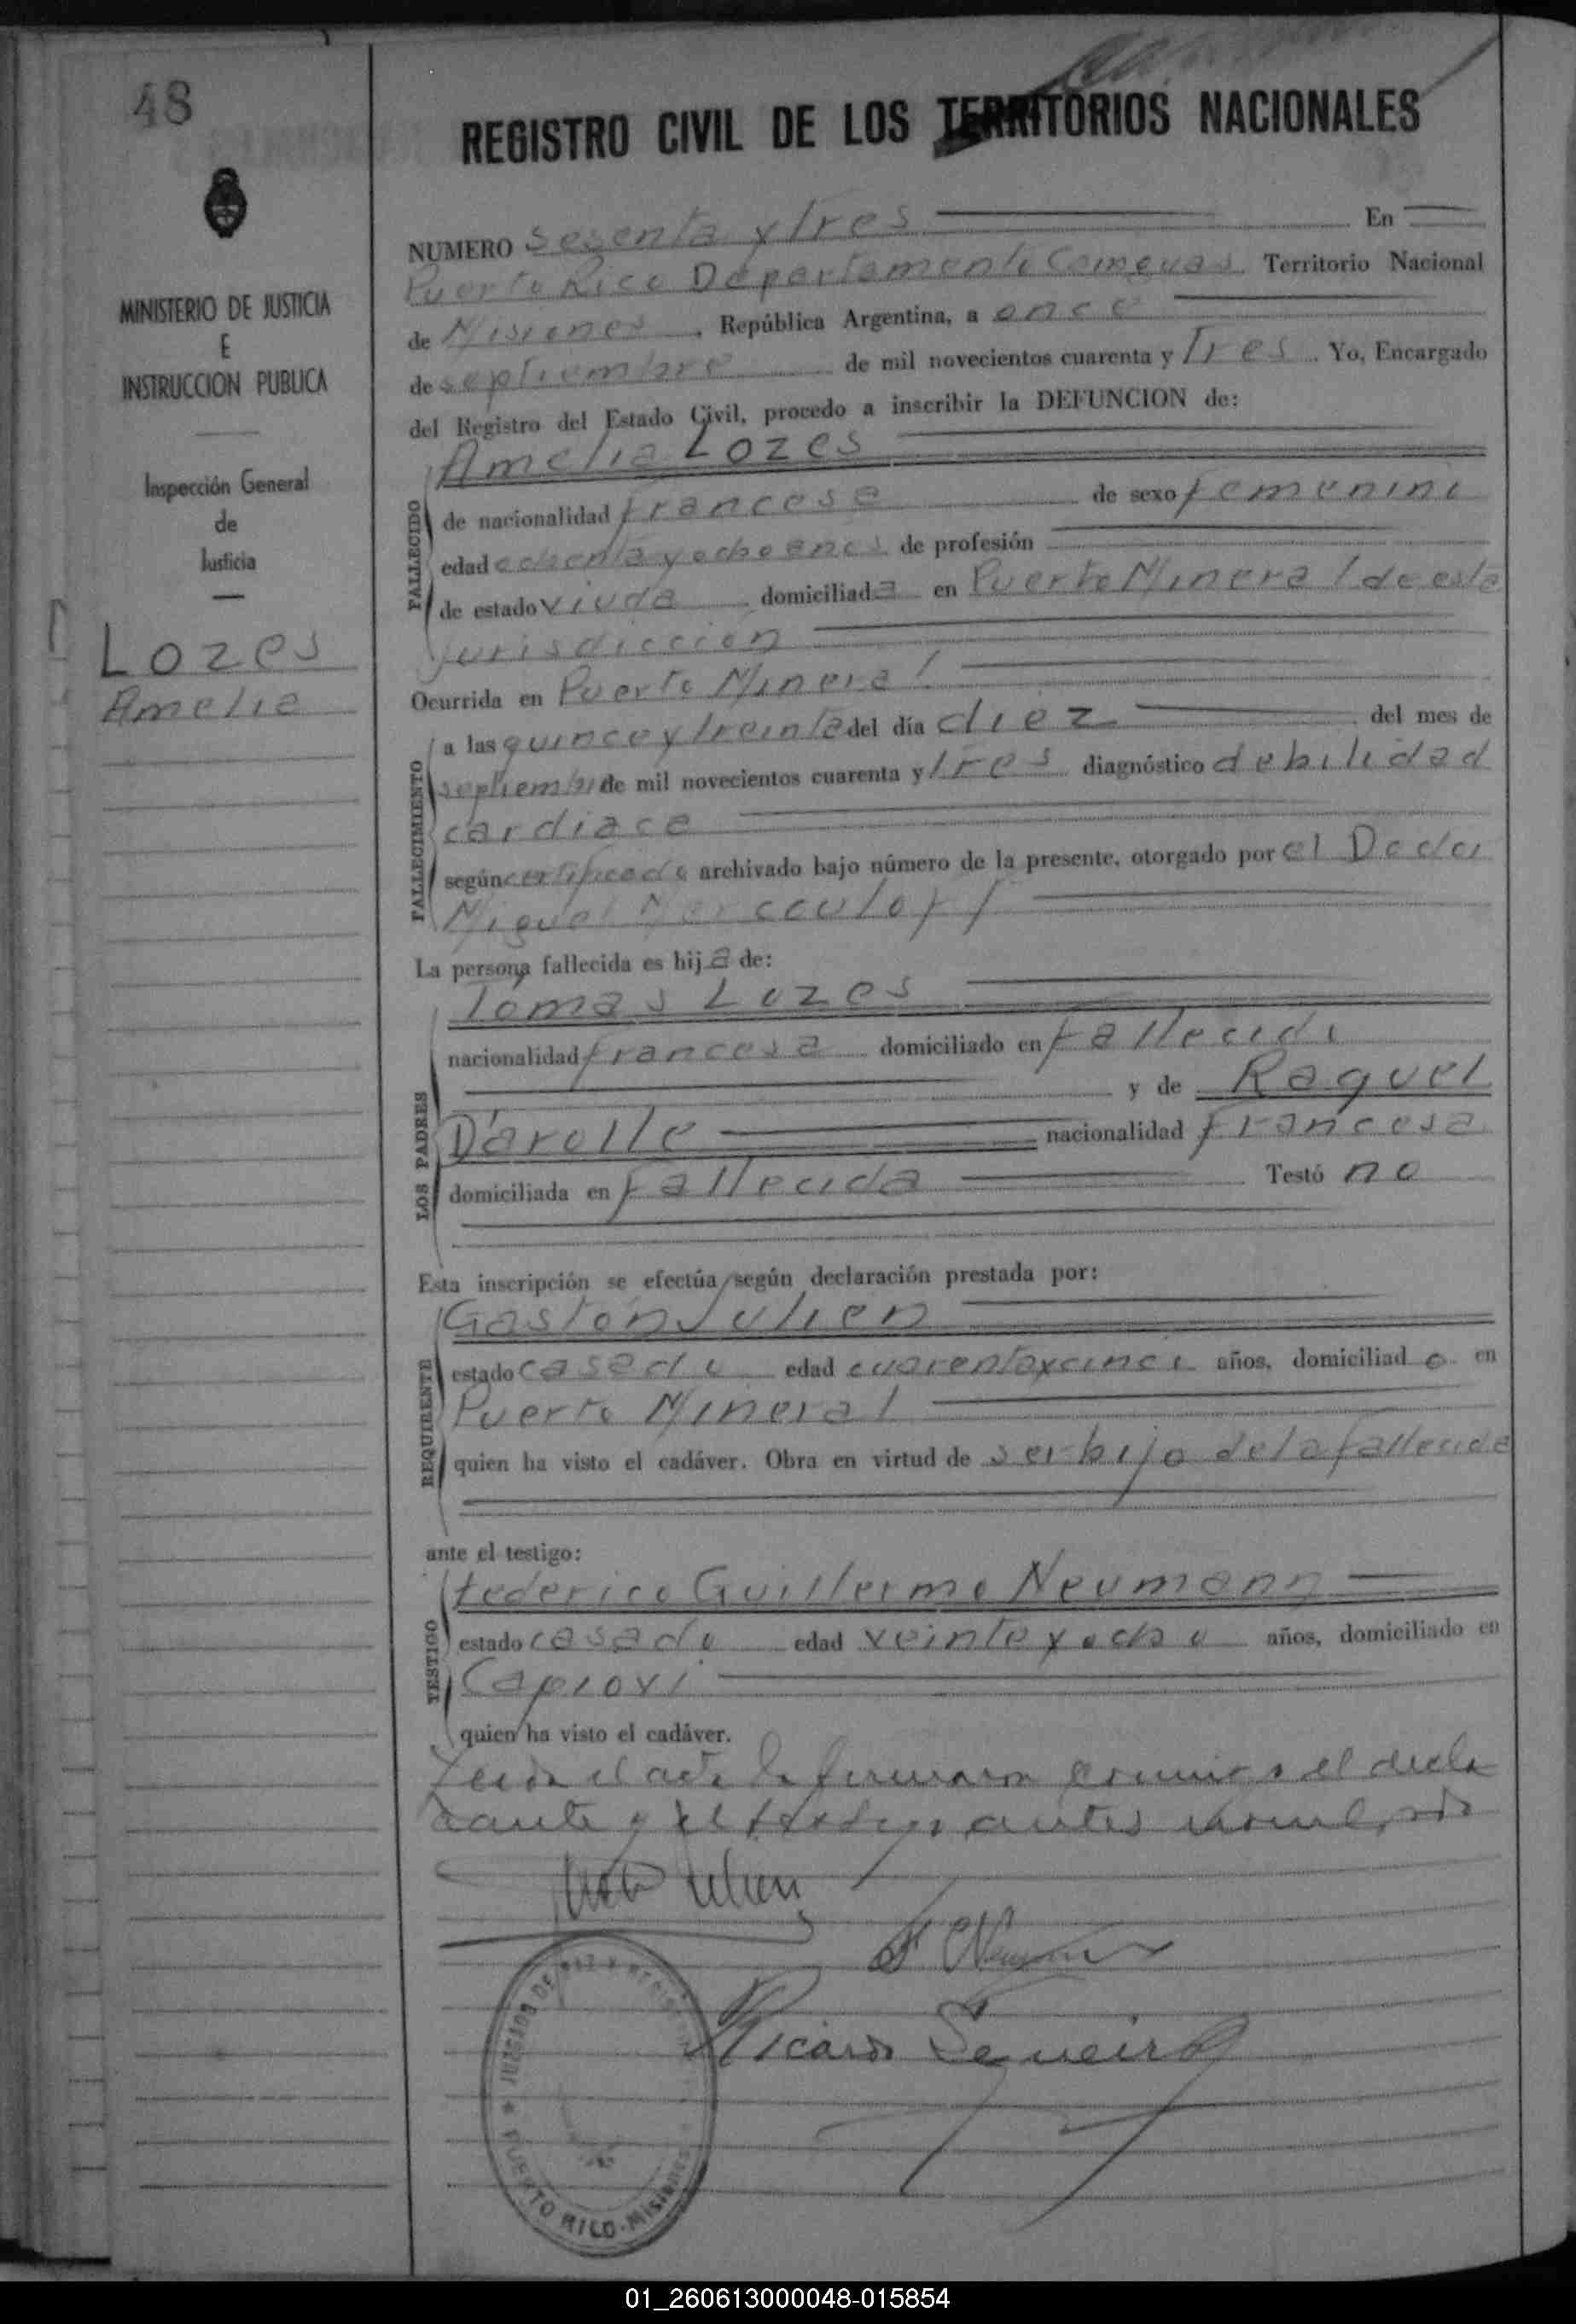 48
REGISTRO CIVIL DE LOS TERRITORIOS NACIONALES
MINISTERIO DE JUSTICIA
E
INSTRUCCION PUBLICA
Inspección General
de
Justicia
Lozes
Amelia
NUMERO sesenta y tres En
Puerto Rico Departamento Cainguas Territorio Nacional
de Misiones, República Argentina, a once
de septiembre de mil novecientos cuarenta y tres. Yo, Encargado
del Registro del Estado Civil, procedo a inscribir la DEFUNCION de:
Amelia Lozes
FALLECIDO
de nacionalidad francesa de sexo femenino
edad ochenta y ocho años de profesión
de estado viuda domiciliada en Puerto Mineral de esta
jurisdiccion
Ocurrida en Puerto Mineral
FALLECIMIENTO
a las quince y treinta del día diez del mes de
septiembre de mil novecientos cuarenta y tres diagnóstico debilidad
cardiaca
según certificado archivado bajo número de la presente, otorgado por el Doctor
Miguel
La persona fallecida es hija de:
LOS PADRES
Tomas Lozes
nacionalidad francesa domiciliado en fallecido
y de Raquel
D'arolle nacionalidad francesa
domiciliada en fallecida Testó no
Esta inscripción se efectúa según declaración prestada por:
REQUIRENTE
Gaston Julien
estado casado edad cuarenta y cinco años, domiciliado en
Puerto Mineral
quien ha visto el cadáver. Obra en virtud de ser hijo de la fallecida
ante el testigo:
TESTIGO
Federico Guillermo Neumann
estado casado edad veinte y ocho años, domiciliado en
Capiovi
quien ha visto el cadáver.
Leida el acta la firmaron conmigo el decla
rante y el testigo antes
Julien
JUZGADO DE PAZ Y
PUERTO RICO - MISIONES
01_260613000048-015854